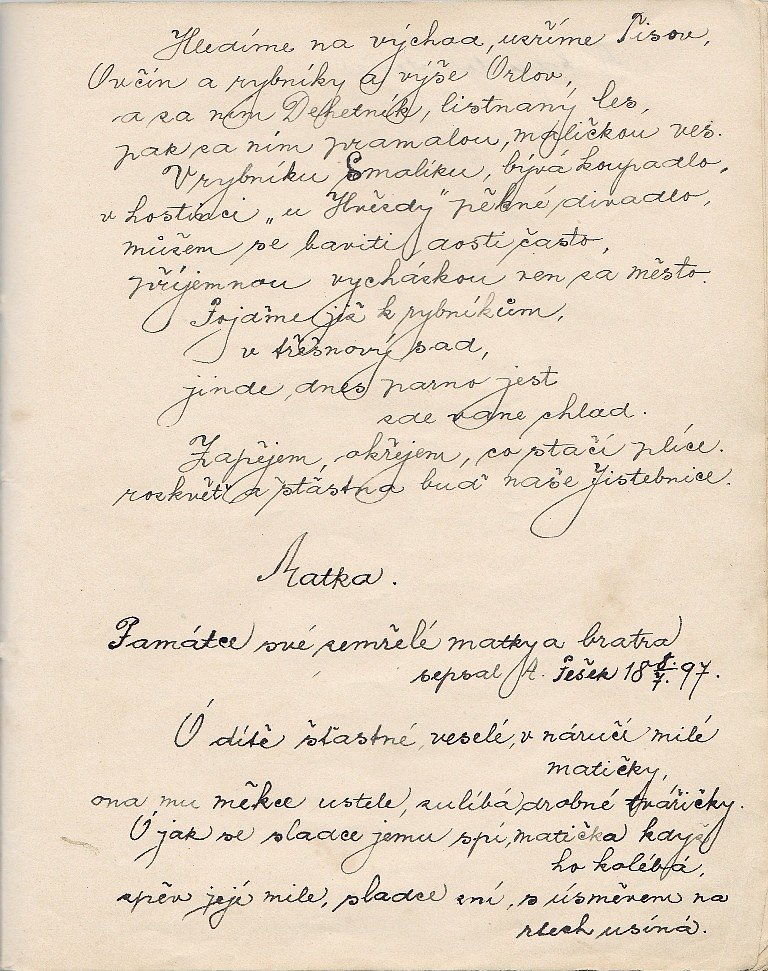 Hledíme na východ, uzříme Pisov,
Ovčín a rybníky a výše Orlov,
a za ním Dehetník, listnaný les,
pak za ním pramalou, maličkou ves.
V rybníku Smaliku, bývá koupadlo,
v hostinci „u Hvězdy" pěkné divadlo,
můžem se baviti dosti často,
příjemnou vycházkou ven za město.
Pojďme již k rybníkům,
v třešnový sad,
jinde dnes parno jest
zde vane chlad.
Zapějem, okřejem, co stačí plíce.
rozkvěť a šťastna buď naše Jistebnice.
Matka.
Památce své zemřelé matky a bratra
sepsal A. Pešek 18 8./7. 97.
Ó dítě šťastné, veselé, v náručí milé
matičky,
ona mu měkce ustele, zulíbá drobné tvářičky.
Ó jak se sladce jemu spí, matička když
ho kolébá,
zpěv její mile, sladce zní, s úsměvem na
rtech usíná.